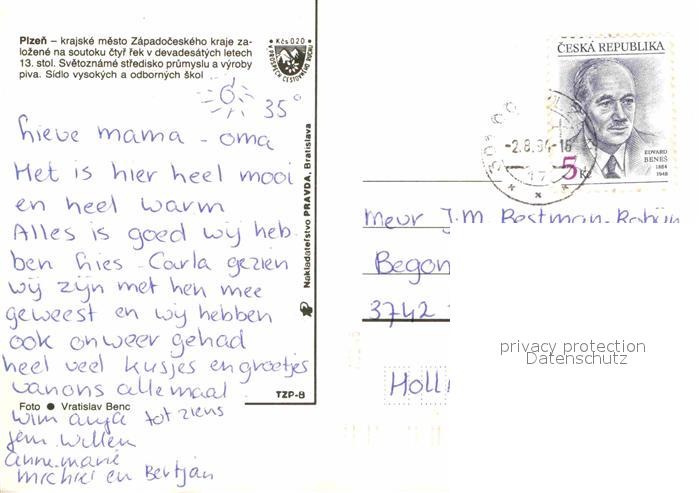 Plzeň – krajské město Západočeského kraje za-
ložené na soutoku čtyř řek v devadesátých letech
13. stol. Světoznámé středisko průmyslu a výroby
piva. Sídlo vysokých a odborných škol
Kčs 0,20
35°
lieve mama - oma
Het is hier heel mooi
en heel warm
Alles is goed wij heb-
ben hies - Carla gezien
wij zijn met hen mee
geweest en wij hebben
ook onweer gehad
heel veel kusjes en groetjes
van ons allemaal
Foto ● Vratislav Benc
Wim anja tot ziens
Jem. Willem
annemarie
michiel en Bertjan
Nakladateľstvo PRAVDA, Bratislava
TZP-8
ČESKÁ REPUBLIKA
EDVARD
BENEŠ
1884
1948
5 Kč
-2.8.94-16
17
Mevr J.M. Bestman-
Begon
3742
Holl
privacy protection
Datenschutz